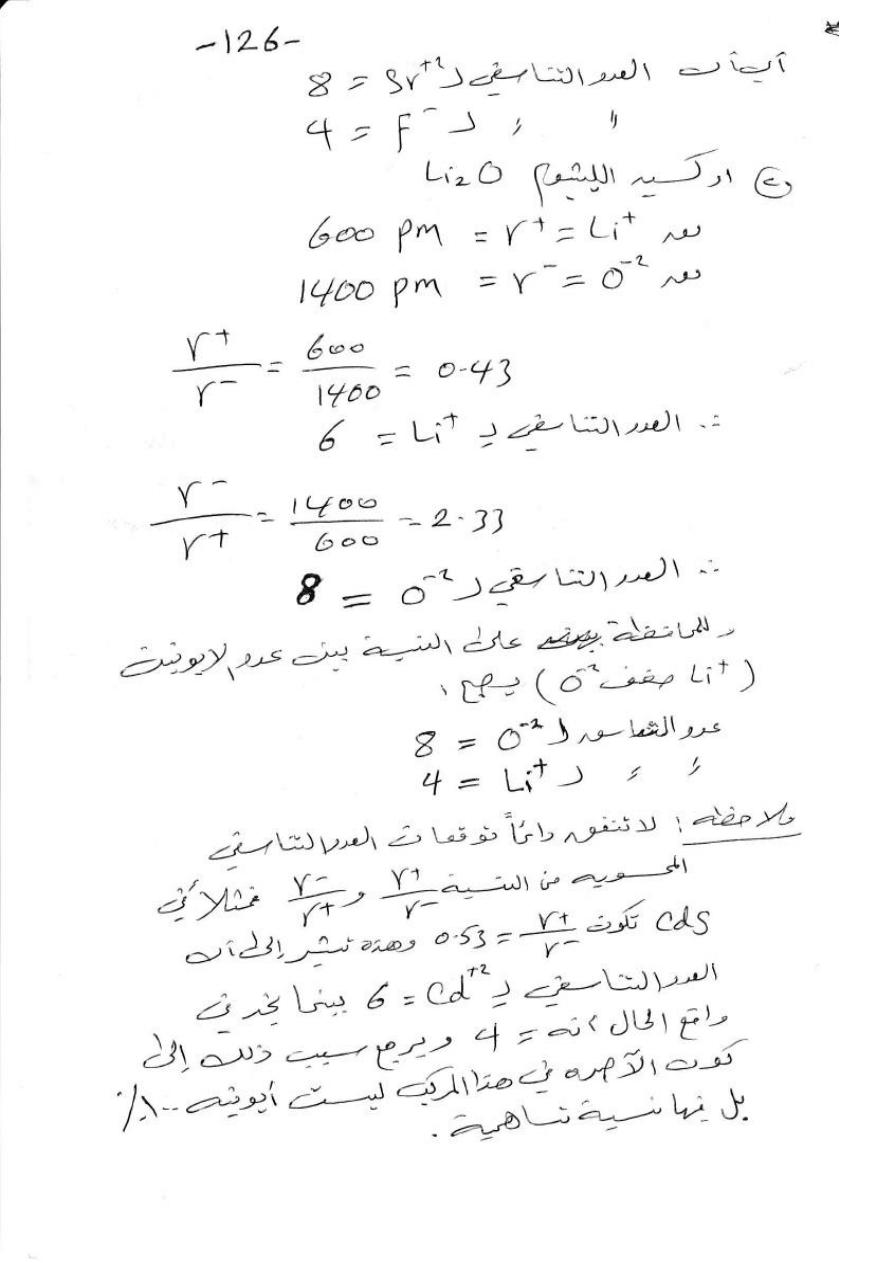 -126-
أي أن العدد التناسقي لـ Sr⁺² = 8
〃 〃 لـ F⁻ = 4
اوكسيد الليثيوم Li₂O
نصف Li⁺ = r⁺ = 600 pm
نصف O⁻² = r⁻ = 1400 pm
r⁺/r⁻ = 600/1400 = 0.43
∴ العدد التناسقي لـ Li⁺ = 6
r⁻/r⁺ = 1400/600 = 2.33
∴ العدد التناسقي لـ O⁻² = 8
وللمحافظة على النسبة بين عدد الايونات
(Li⁺ ضعف O⁻²) يصبح
عدد التناسق لـ O⁻² = 8
〃 〃 لـ Li⁺ = 4
ملاحظه : لا تتفق دائماً توقعات العدد التناسقي
المحسوبه من النسبة r⁺/r⁻ و r⁻/r⁺ فمثلاً في
CdS تكون r⁺/r⁻ = 0.53 وهذه تشير إلى أن
العدد التناسقي لـ Cd⁺² = 6 بينما نجد في
واقع الحال انه = 4 ويرجع سبب ذلك إلى
كون الآصره في هذا المركب ليست أيونيه ١٠٠٪
بل فيها نسبة تساهمية .